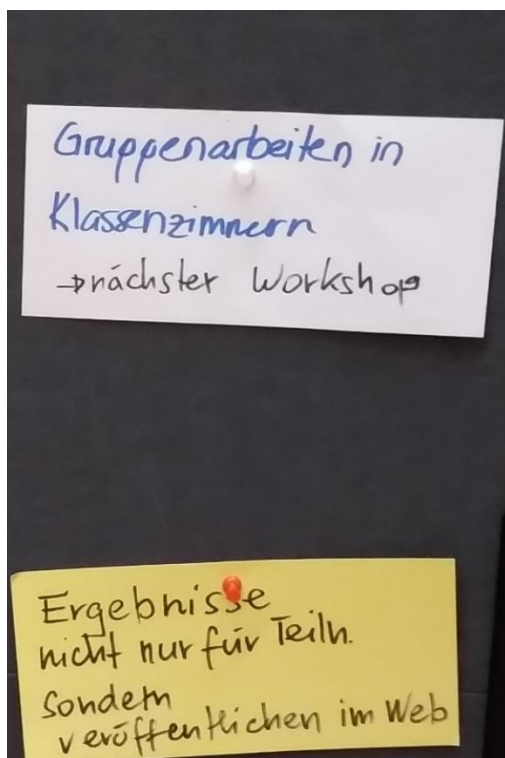 Gruppenarbeiten in
Klassenzimmern
→nächster Workshop
Ergebnisse
nicht nur für Teiln.
sondern
veröffentlichen im Web